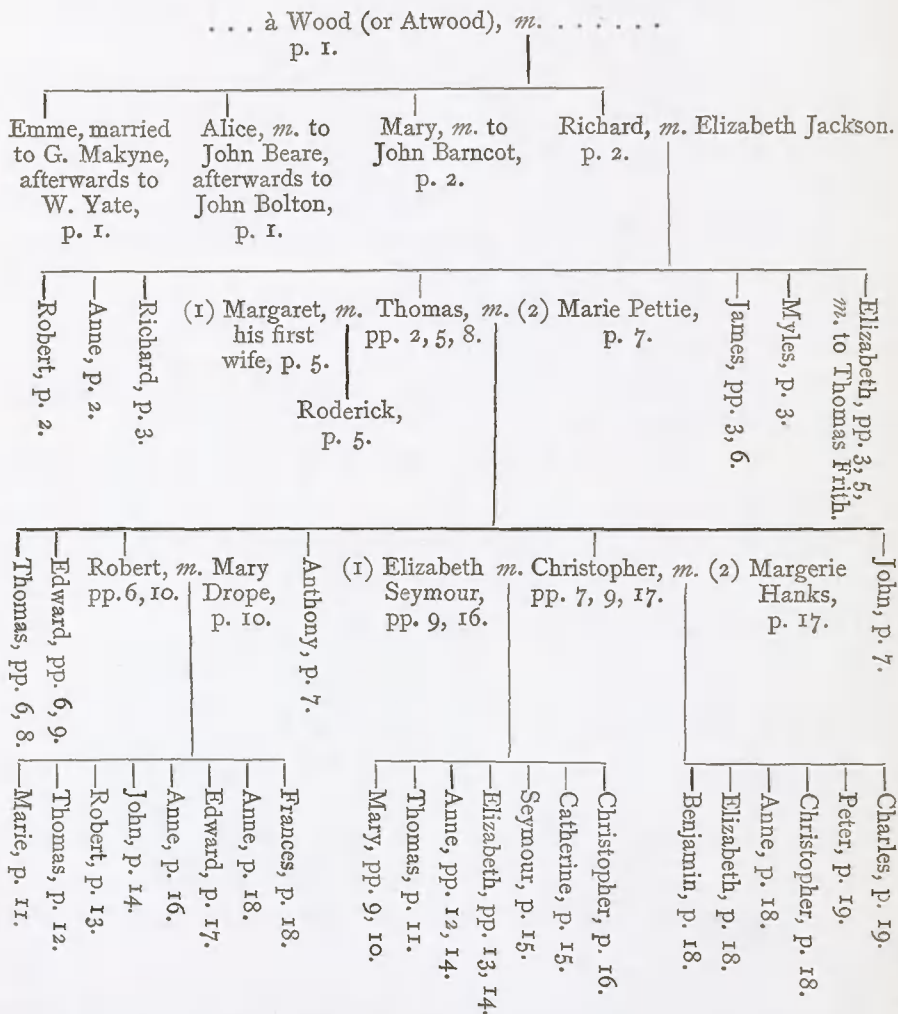 . . . à Wood (or Atwood), m. . . . . . .
p. 1.
Emme, married
to G. Makyne,
afterwards to
W. Yate,
p. 1.
Alice, m. to
John Beare,
afterwards to
John Bolton,
p. 1.
Mary, m. to
John Barncot,
p. 2.
Richard, m. Elizabeth Jackson.
p. 2.
Robert, p. 2.
Anne, p. 2.
Richard, p. 3.
(1) Margaret, m. Thomas, m. (2) Marie Pettie,
his first pp. 2, 5, 8. p. 7.
wife, p. 5.
Roderick,
p. 5.
James, pp. 3, 6.
Myles, p. 3.
Elizabeth, pp. 3, 5,
m. to Thomas Frith.
Thomas, pp. 6, 8.
Edward, pp. 6, 9.
Robert, m. Mary
pp. 6, 10. Drope,
p. 10.
Anthony, p. 7.
(1) Elizabeth m. Christopher, m. (2) Margerie
Seymour, pp. 7, 9, 17. Hanks,
pp. 9, 16. p. 17.
John, p. 7.
Marie, p. 11.
Thomas, p. 12.
Robert, p. 13.
John, p. 14.
Anne, p. 16.
Edward, p. 17.
Anne, p. 18.
Frances, p. 18.
Mary, pp. 9, 10.
Thomas, p. 11.
Anne, pp. 12, 14.
Elizabeth, pp. 13, 14.
Seymour, p. 15.
Catherine, p. 15.
Christopher, p. 16.
Benjamin, p. 18.
Elizabeth, p. 18.
Anne, p. 18.
Christopher, p. 18.
Peter, p. 19.
Charles, p. 19.